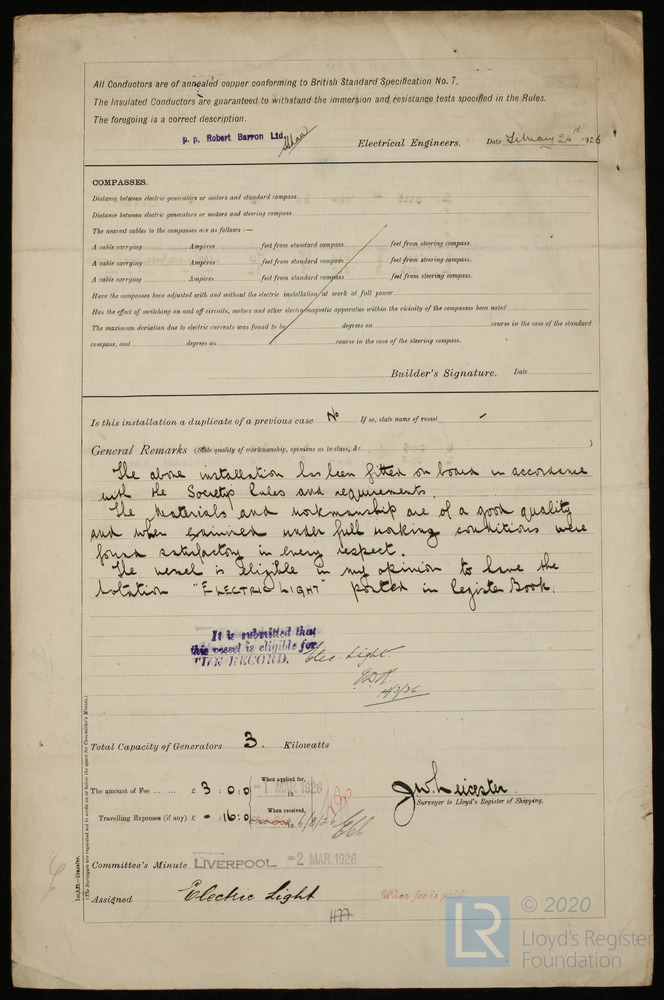 All Conductors are of annealed copper conforming to British Standard Specification No. 7.
The Insulated Conductors are guaranteed to withstand the immersion and resistance tests specified in the Rules.
The foregoing is a correct description.
p. p. Robert Barron Ltd. Electrical Engineers. Date February 24th 1926
COMPASSES.
Distance between electric generators or motors and standard compass
Distance between electric generators or motors and steering compass
The nearest cables to the compasses are as follows :—
A cable carrying Ampères feet from standard compass feet from steering compass.
A cable carrying Ampères feet from standard compass feet from steering compass.
A cable carrying Ampères feet from standard compass feet from steering compass.
Have the compasses been adjusted with and without the electric installation at work at full power
Has the effect of switching on and off circuits, motors and other electro-magnetic apparatus within the vicinity of the compasses been noted
The maximum deviation due to electric currents was found to be degrees on course in the case of the standard
compass, and degrees on course in the case of the steering compass.
Builder's Signature. Date
Is this installation a duplicate of a previous case No If so, state name of vessel -
General Remarks (State quality of workmanship, opinions as to class, &c. )
The above installation has been fitted on board in accordance
with the Society's Rules and requirements.
The Materials and workmanship are of a good quality
and when examined under full working conditions were
found satisfactory in every respect.
The vessel is eligible in my opinion to have the
Notation "ELECTRIC LIGHT" posted in Register Book.
It is submitted that
this vessel is eligible for
THE RECORD. Elec. Light.
4/3/26
Total Capacity of Generators 3. Kilowatts
The amount of Fee ... ... £ 3 : 0 : 0 When applied for, -1 MAR 1926
Travelling Expenses (if any) £ - : 16 : 0 When received, 6/3/26
J W Leicester
Surveyor to Lloyd's Register of Shipping.
Committee's Minute LIVERPOOL -2 MAR 1926
Assigned Electric Light When fee is paid
1177
1m,8,25—Transfer.
(The Surveyors are requested not to write on or below the space for Committee's Minute.)
LR © 2020
Lloyd's Register
Foundation